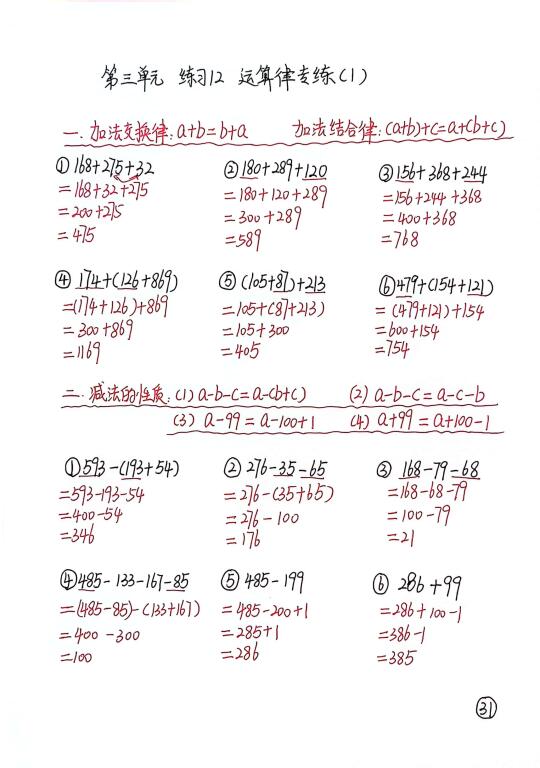 第三单元 练习12 运算律专练(1)
一.加法交换律:a+b=b+a 加法结合律:(a+b)+c=a+(b+c)
①168+275+32 ②180+289+120 ③156+368+244
=168+32+275 =180+120+289 =156+244+368
=200+275 =300+289 =400+368
=475 =589 =768
④174+(126+869) ⑤(105+87)+213 ⑥479+(154+121)
=(174+126)+869 =105+(87+213) =(479+121)+154
=300+869 =105+300 =600+154
=1169 =405 =754
二.减法的性质:(1) a-b-c=a-(b+c) (2) a-b-c=a-c-b
(3) a-99=a-100+1 (4) a+99=a+100-1
①593-(193+54) ②276-35-65 ③168-79-68
=593-193-54 =276-(35+65) =168-68-79
=400-54 =276-100 =100-79
=346 =176 =21
④485-133-167-85 ⑤485-199 ⑥286+99
=(485-85)-(133+167) =485-200+1 =286+100-1
=400-300 =285+1 =386-1
=100 =286 =385
㉛